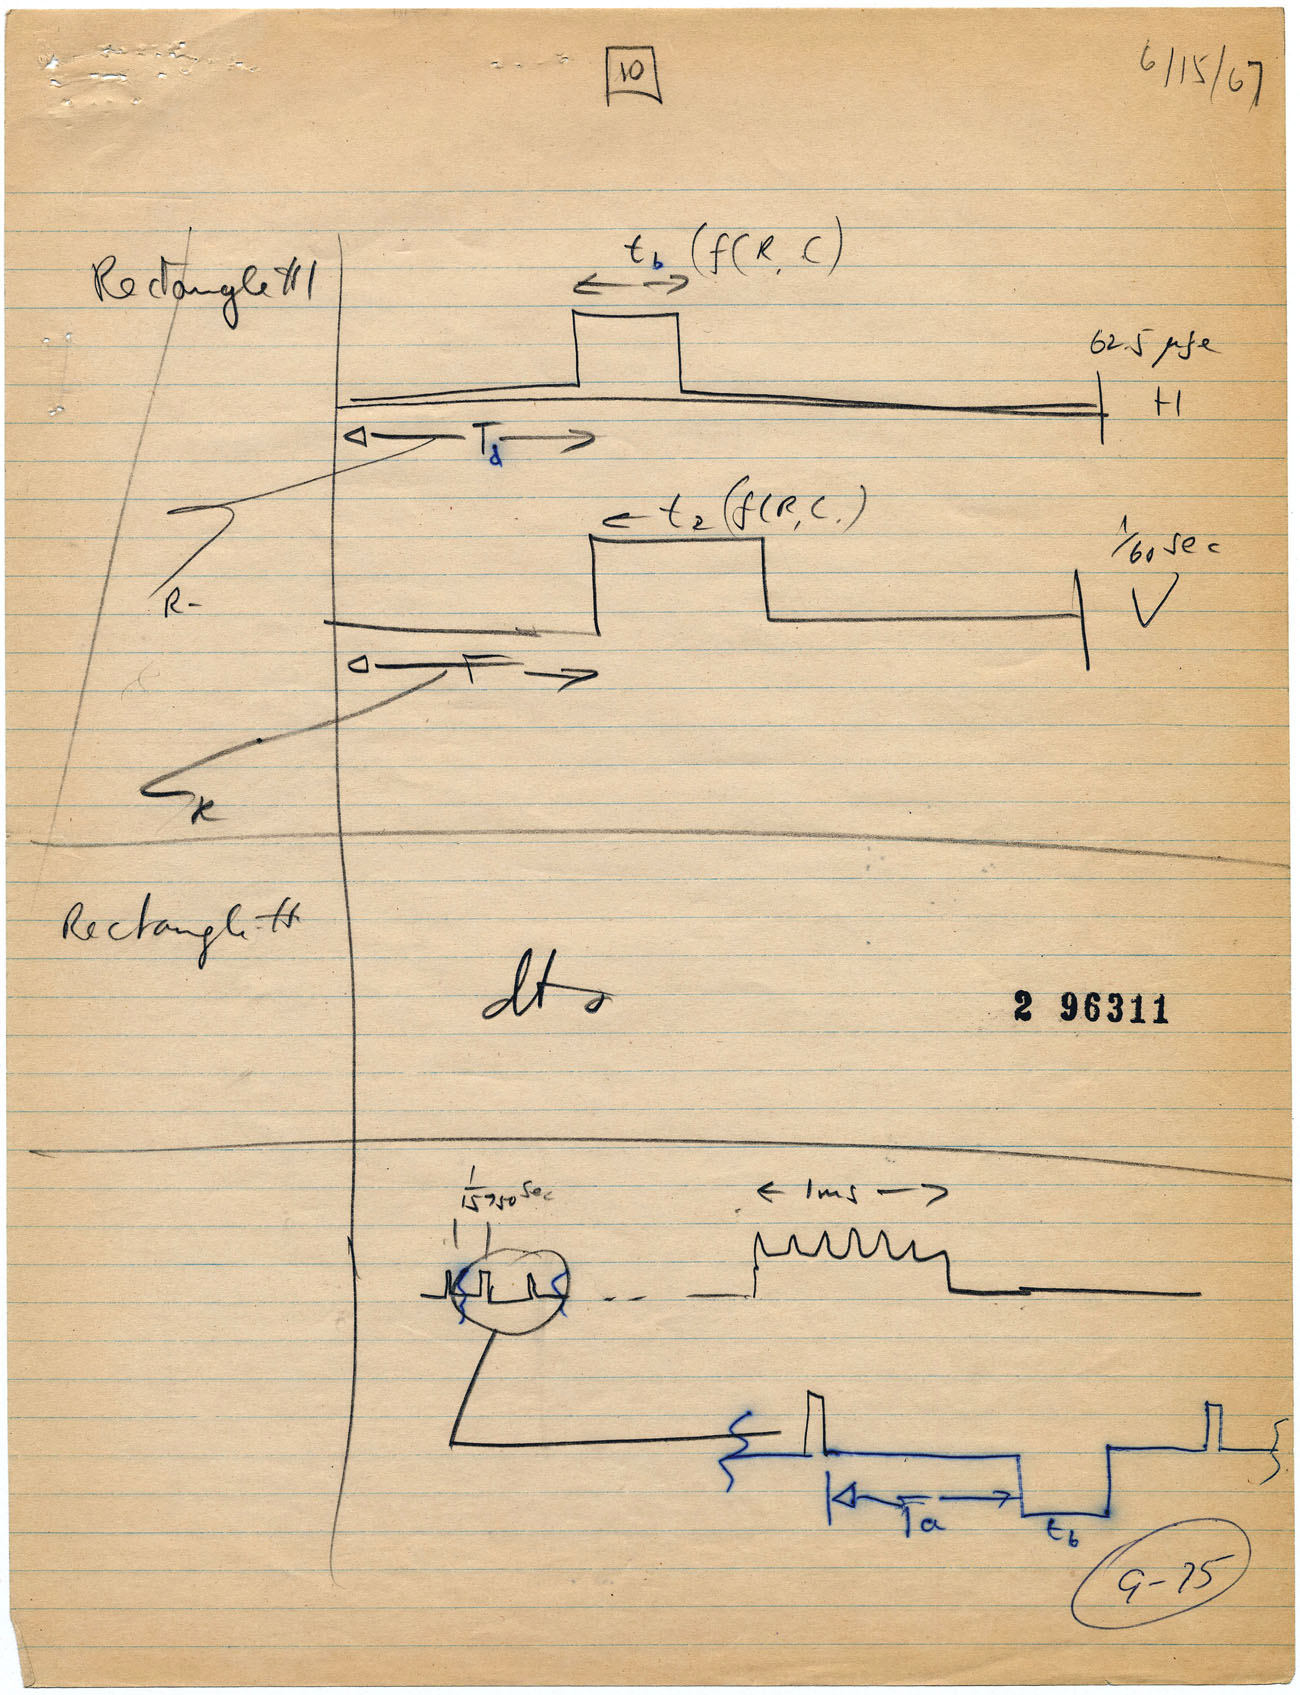 10
6/15/67
Rectangle #1
t_b (f(R, C)
62.5 µse
H
T_d
t_2 (f(R, C.)
1/60 sec
V
R-
T
R
Rectangle #
dto
2 96311
1/15750 sec
1ms
T_a
t_b
G-75